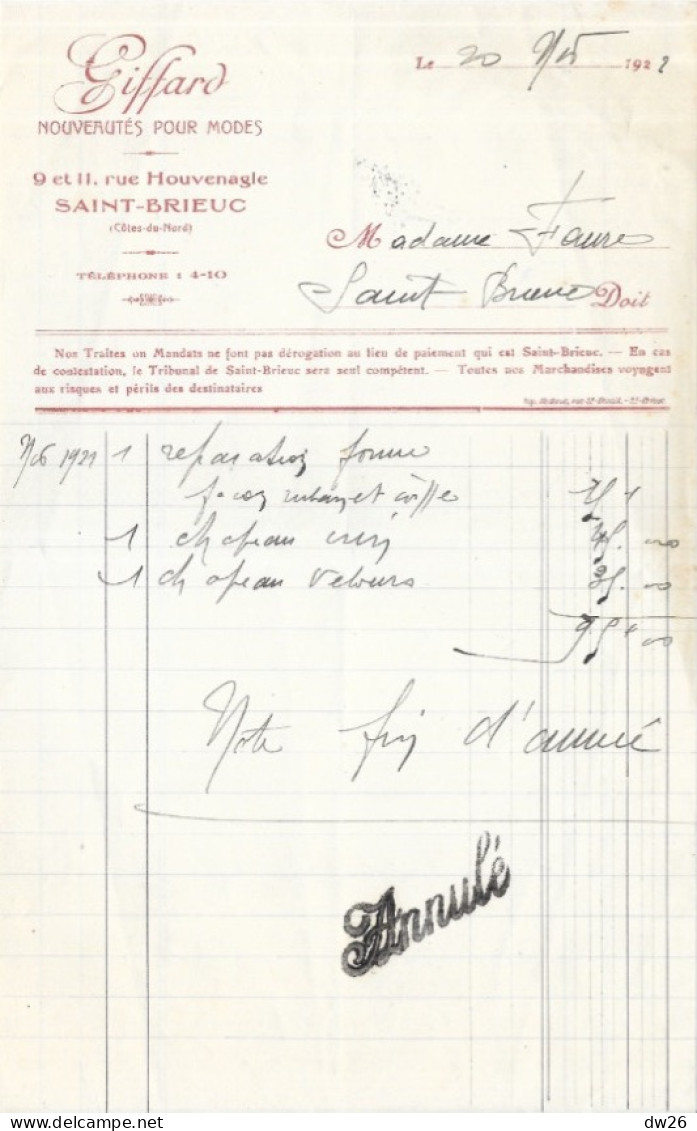 Giffard
NOUVEAUTÉS POUR MODES
9 et 11, rue Houvenagle
SAINT-BRIEUC
(Côtes-du-Nord)
TÉLÉPHONE : 4-10
Le 20 1922
Madame Faure
Saint Brieuc Doit
Nos Traites ou Mandats ne font pas dérogation au lieu de paiement qui est Saint-Brieuc. — En cas
de contestation, le Tribunal de Saint-Brieuc sera seul compétent. — Toutes nos Marchandises voyagent
aux risques et périls des destinataires
1921 1 reparation forme
façon ruban et coiffe
1 chapeau crin
1 chapeau velours
Note fin d'année
Annulé
dw26